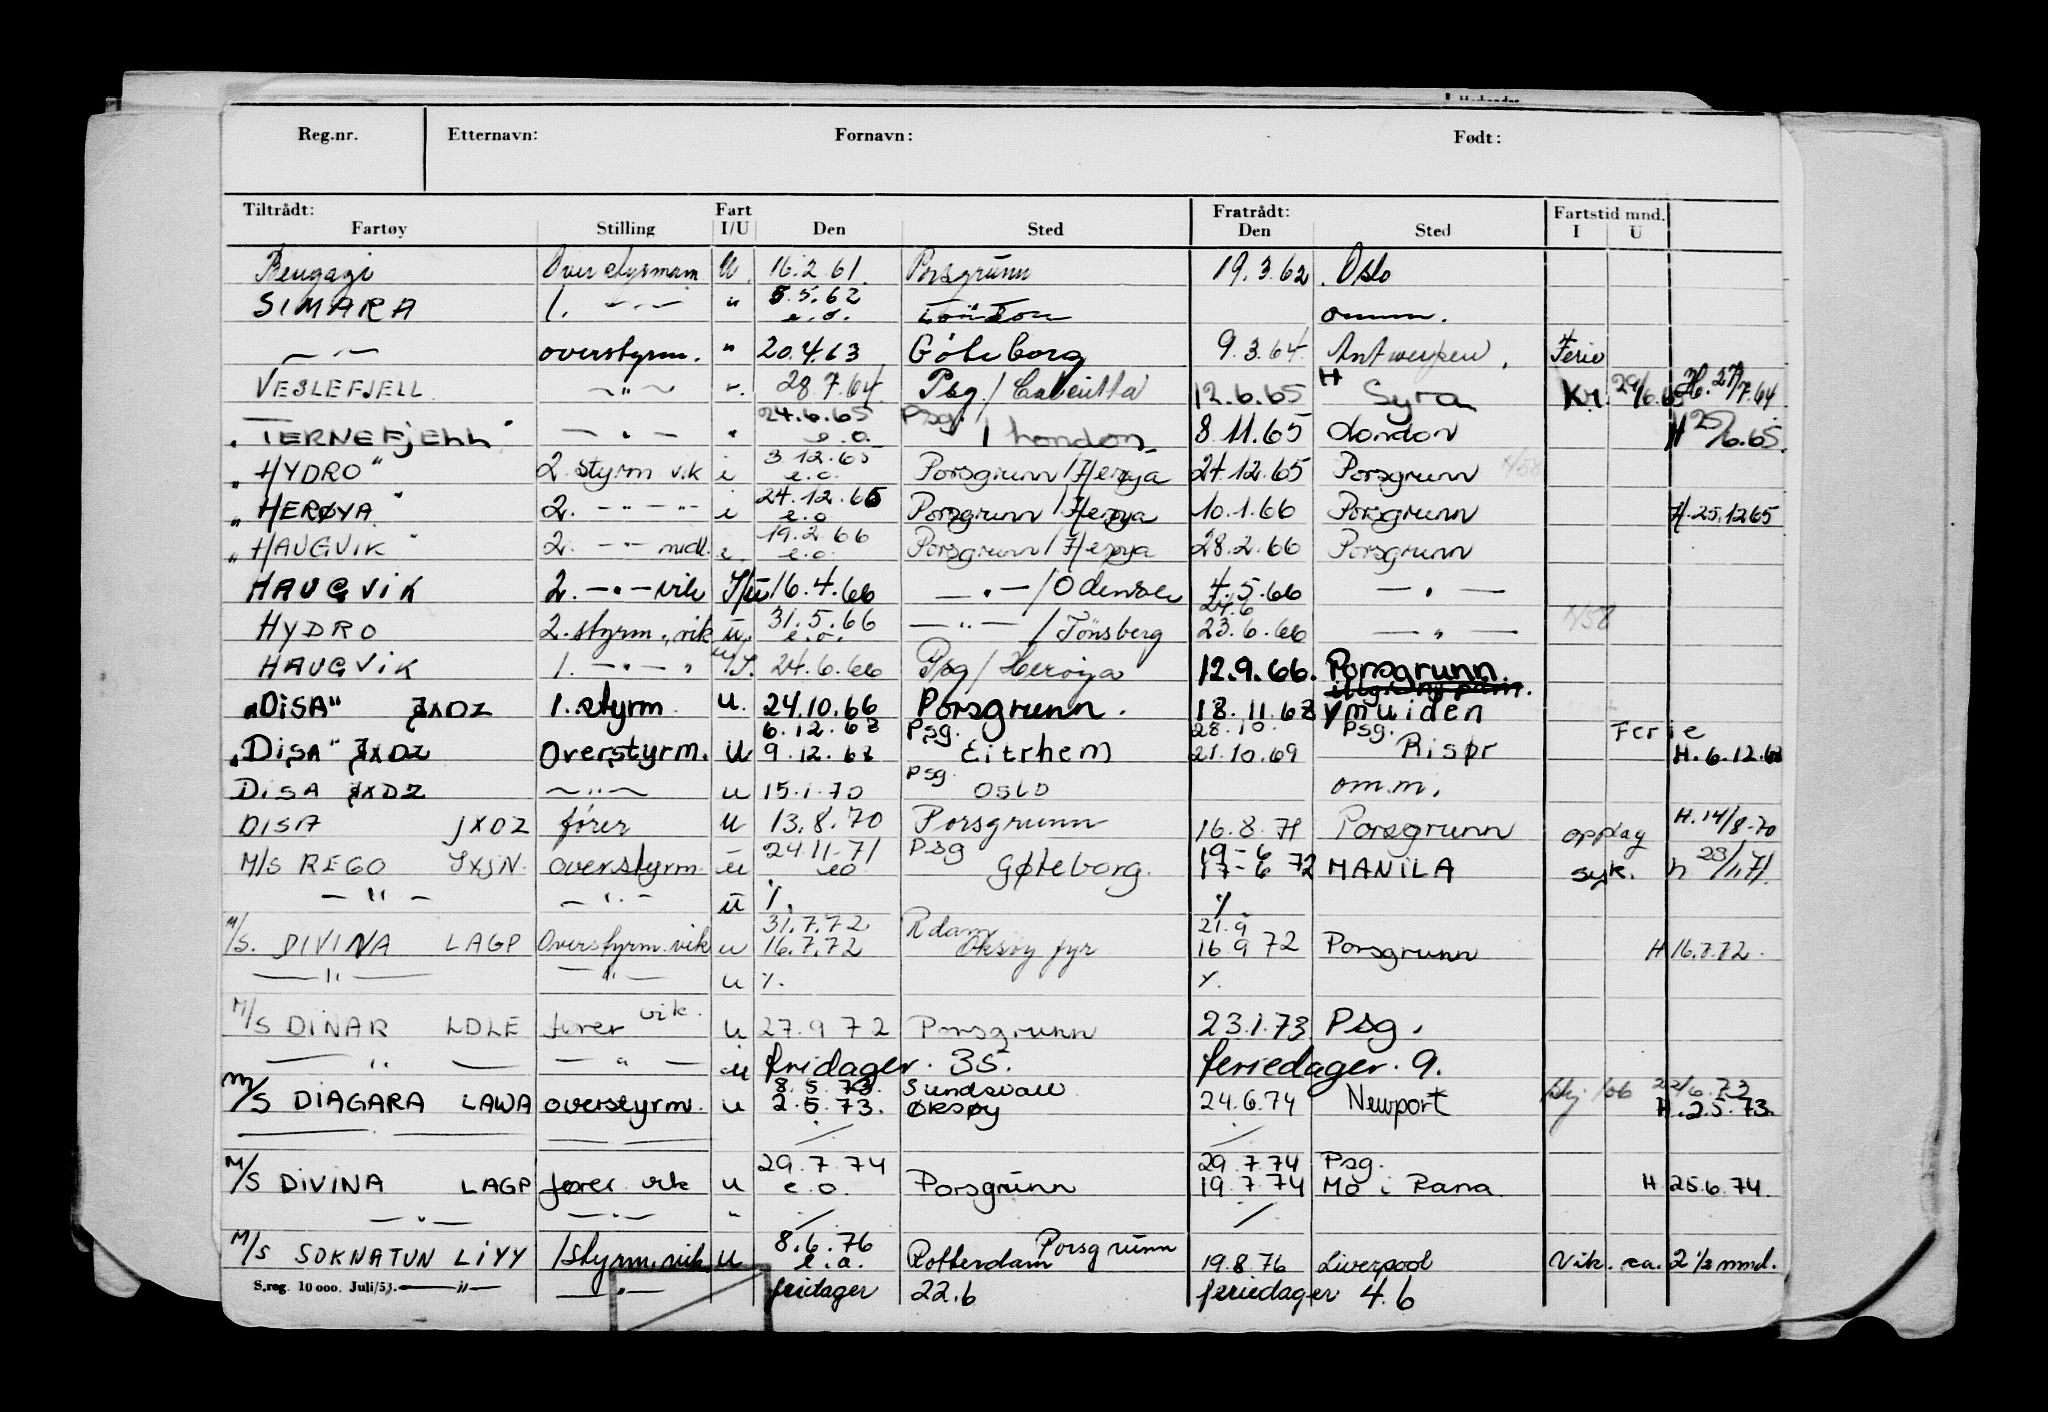 Reg.nr. Etternavn: Fornavn: Født:
Tiltrådt: Fart Fratrådt: Fartstid mnd.
Fartøy Stilling I/U Den Sted Den Sted I U
Bengazi Overstyrmann U. 16.2.61. Porsgrunn 19.3.62. Oslo
SIMARA 1. — " — " 5.5.62 e.o. London omm.
— " — overstyrm. " 20.4.63 Göteborg 9.3.64. Antwerpen. Ferie
VESLEFJELL — " — ". 28.7.64. Psg./Calcutta 12.6.65 Syra H. 27/7.64
"TERNEFJELL" — " — " 24.6.65 e.o. Psg. / London 8.11.65 London H 25/6.65
"HYDRO" 2. styrm vik i 3.12.65 e.o. Porsgrunn/Herøya 24.12.65 Porsgrunn
"HERØYA" 2. — " — " — i 24.12.65 e.o Porsgrunn/Herøya 10.1.66 Porsgrunn H. 25.12.65
"HAUGVIK" 2. — " — midl. i. 19.2.66 e.o. Porsgrunn/Herøya 28.2.66 Porsgrunn
HAUGVIK 2. — " — vik I/u 16.4.66 — " — /Odense 4.5.66 — " —
HYDRO 2. styrm. vik u. 31.5.66 e.o. — " — /Tönsberg 24.6 23.6.66 — " — 4/58
HAUGVIK 1. — " — " U/I. 24.6.66 Psg/Herøya 12.9.66. Porsgrunn
"DISA" JXDZ 1. styrm. u. 24.10.66 Porsgrunn. 18.11.68 Ymuiden
"DISA" JXDZ Overstyrm. U 6.12.68 9.12.68 Psg. Eitrhem 28.10. 21.10.69 Psg. Risør Ferie H. 6.12.68
DISA JXDZ — " — u 15.1.70 Psg. OSLO om.m.
DISA JXDZ fører U 13.8.70 Porsgrunn 16.8.71 Porsgrunn opplag H. 14/8-70
M/S REGO JXJN. overstyrm. u 24.11-71 eo Psg Gøteborg. 19-6 17-6 72 MANILA syk. h 23/11.71.
— " — — " — u ٪. ٪
M/S. DIVINA LAGP Overstyrm. vik u 31.7.72 16.7.72 Rdam Oksøy fyr 21.9 16.9 72 Porsgrunn H 16.7.72.
— " — — " — u ٪. ٪.
M/S DINAR LDLE fører vik. u 27.9 72 Porsgrunn 23.1.73 Psg.
— " — — " — u fridager. 35. feriedager. 9.
M/S DIAGARA LAWA overstyrm. u 8.5.73. 2.5.73. Sundsvall ØKSØY 24.6.74 Newport 22/6.73 H. 2.5.73.
M/S DIVINA LAGP fører vik u 29.7.74 e.o. Porsgrunn 29.7.74 19.7.74 Psg. Mo i Rana H 25.6.74.
— " — — " — "
M/S SOKNATUN LIYY 1 styrm. vik. U 8.6.76 e.o. Porsgrunn Rotterdam 19.8.76 Liverpool Vik. ca. 2 1/2 mnd.
S.reg. 10 000. Juli/53. — " — — " — fridager 22.6 feriedager 4.6